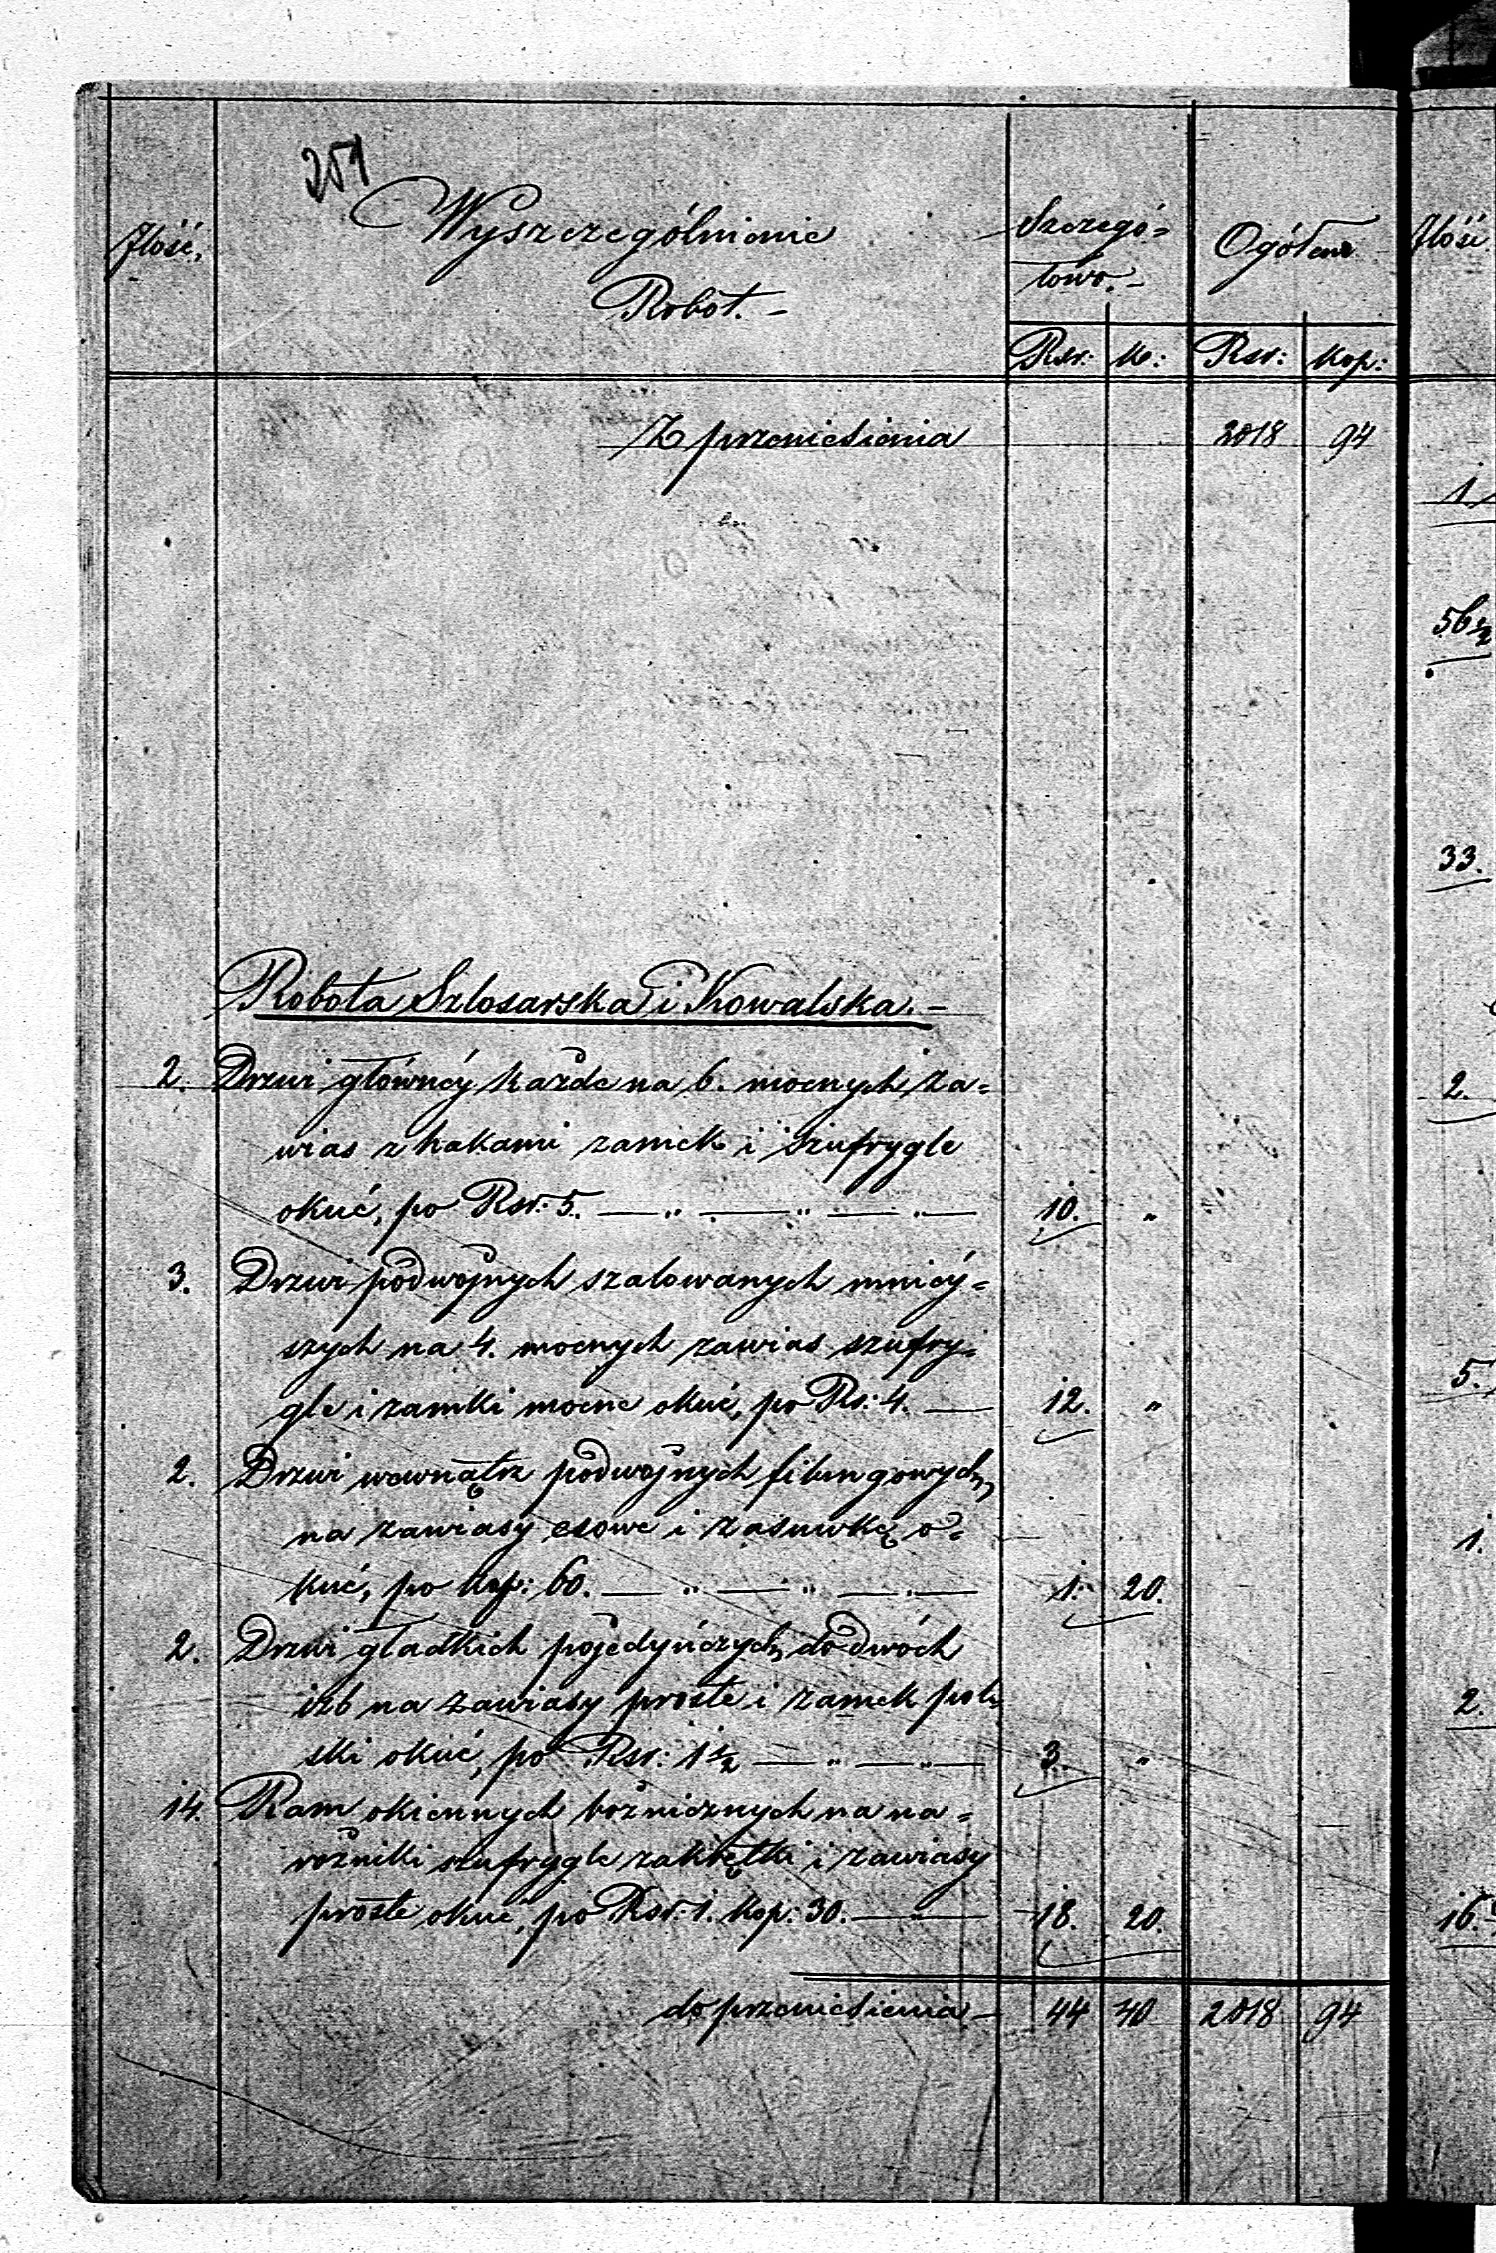 251
Ilość.
Wyszczególnienie
Robot. –
Szczegó=
łowo. –
Ogółem
Rsr: k: Rsr: kop:
Z przeniesienia 2018 94
Robota Szlosarska i Kowalska. –
2. Drzwi głównéy każde na 6. mocnych za=
wias z hakami zamek i szufrygle
okuć, po Rsr: 5. — „ — „ — „ — 10. „
3. Drzwi podwojnych szalowanych mniéy=
szych na 4. mocnych zawias szufry=
gle i zamki mocne okuć, po Rs: 4. — 12. „
2. Drzwi wewnątrz podwojnych filungowych
na zawiasy esowe i zasuwkę o=
kuć, po kop: 60. — „ — „ — „ — 1. 20.
2. Drzwi gładkich pojedyńczych do dwóch
izb na zawiasy proste i zamek pol=
ski okuć, po Rsr: 1 1/2 — „ — „ — 3. „
14. Ram okiennych bożnicznych na na=
rożniki szufrygle zakrętki i zawiasy
proste okuć, po Rsr. 1. kop: 30. — „ — 18. 20.
do przeniesienia – 44 40 2018 94
Ilość.
1
56 1/2
33.
2.
5.
1.
2.
16.